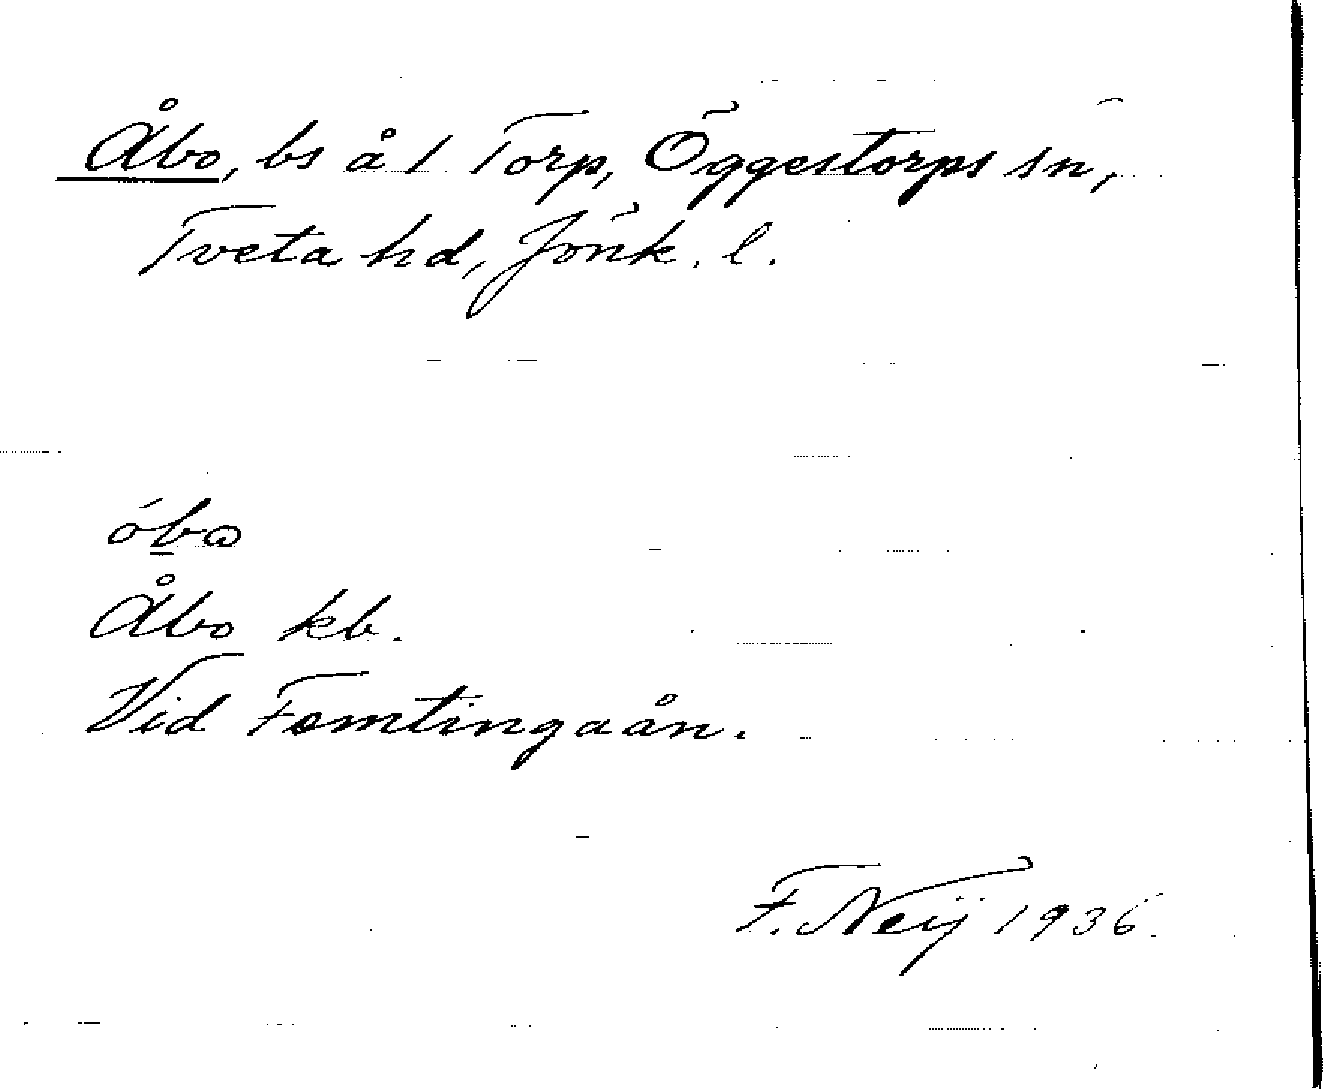 Åbo, bs å 1 Torp, Öggestorps sn,
Tveta hd, Jönk. l.
Åbo kb.
Vid Femtingaån.
F. Neij 1936.